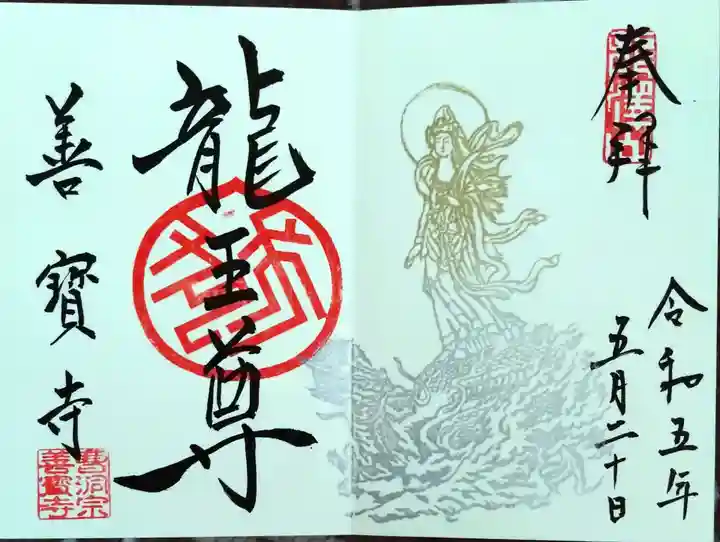 奉拝
令和五年
五月二十日
龍王尊
善寳寺
曹洞宗
善寳寺